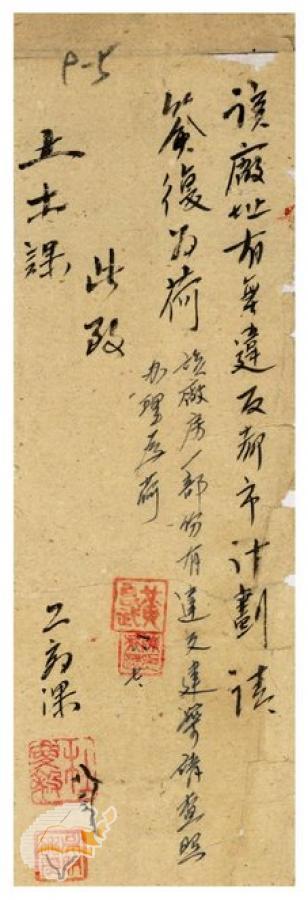 該廠址有無違反都市計劃請
簽復為荷
此致
土木課
工商課
該廠房一部份有違反建築請查照
办理為荷
P-5